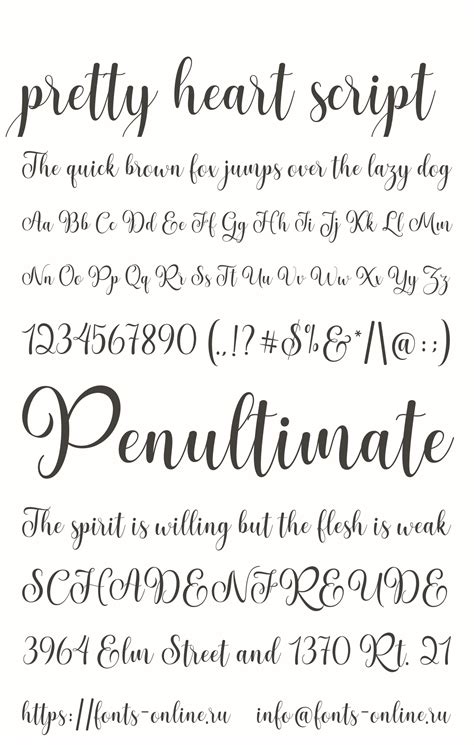 pretty heart script
The quick brown fox jumps over the lazy dog
Aa Bb Cc Dd Ee Ff Gg Hh Ii Jj Kk Ll Mm
Nn Oo Pp Qq Rr Ss Tt Uu Vv Ww Xx Yy Zz
1234567890 (.,!?#$%&*/|\@:;)
Penultimate
The spirit is willing but the flesh is weak
SCHADENFREUDE
3964 Elm Street and 1370 Rt. 21
https://fonts-online.ru info@fonts-online.ru